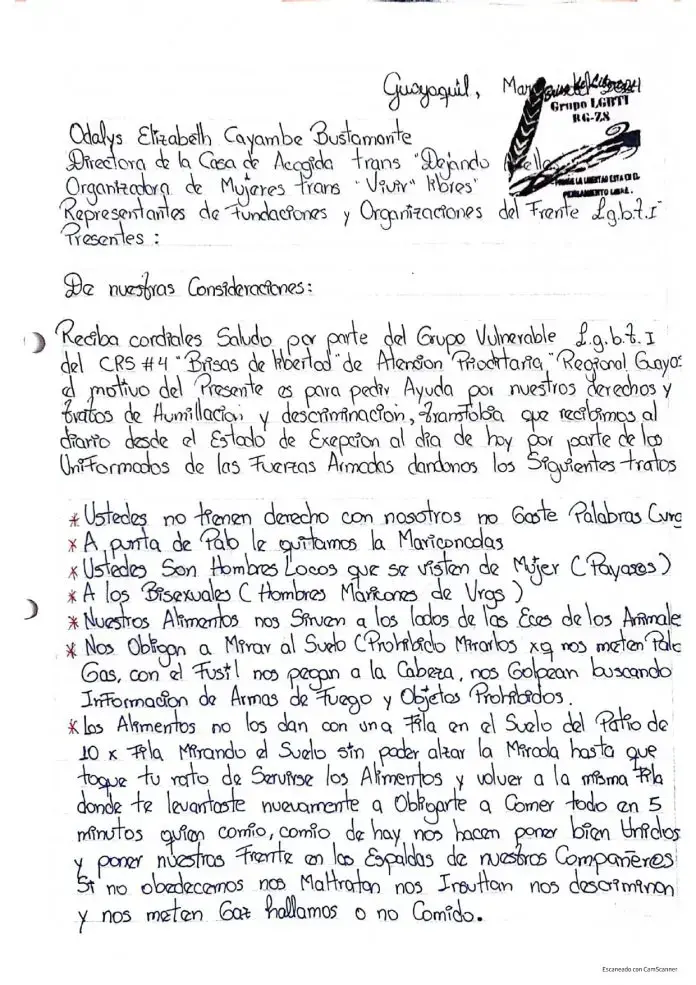 Guayaquil, Mar
Grupo LGBTI
RG-Z8
Odalys Elizabeth Cayambe Bustamante
Directora de la Casa de Acogida trans "Dejando
Organizadora de Mujeres trans "Vivir" libres"
PORQUE LA LIBERTAD ESTA EN EL
PENSAMIENTO LIBRE.
Representantes de Fundaciones y Organizaciones del Frente L.g.b.t.I
Presentes :
De nuestras Consideraciones:
Reciba cordiales Saludo por parte del Grupo Vulnerable L.g.b.t.I
del CRS #4 "Brisas de libertad" de Atencion Prioritaria "Regional Guayas
el motivo del Presente es para pedir Ayuda por nuestros derechos y
tratos de Humillacion y descriminacion, transfobia que recibimos al
diario desde el Estado de Exepcion al dia de hoy por parte de los
UniFormados de las Fuerzas Armadas dandonos los Siguientes tratos
* Ustedes no tienen derecho con nosotros no Gaste Palabras
* A punta de Palo le quitamos la Mariconadas
* Ustedes Son Hombres Locos que se visten de Mujer (Payasos)
* A los Bisexuales (Hombres Maricones de Vrgs)
* Nuestros Alimentos nos Sirven a los lados de las Eces de los Animale
* Nos Obligan a Mirar al Suelo (Prohibido Mirarlos xq nos meten Palo
Gas, con el Fusil nos pegan a la Cabeza, nos Golpean buscando
InFormacion de Armas de Fuego y Objetos Prohibidos.
* los Alimentos no los dan con una Fila en el Suelo del Patio de
10 x Fila Mirando el Suelo sin poder alzar la Mirada hasta que
toque tu rato de Servirse los Alimentos y volver a la misma Fila
donde te levantaste nuevamente a Obligarte a Comer todo en 5
minutos quien comio, comio de hay nos hacen poner bien Unidos
y poner nuestras Frente en las Espaldas de nuestros Compañeros
Si no obedecemos nos Maltratan nos Insultan nos descriminan
y nos meten Gaz hallamos o no Comido.
Escaneado con CamScanner